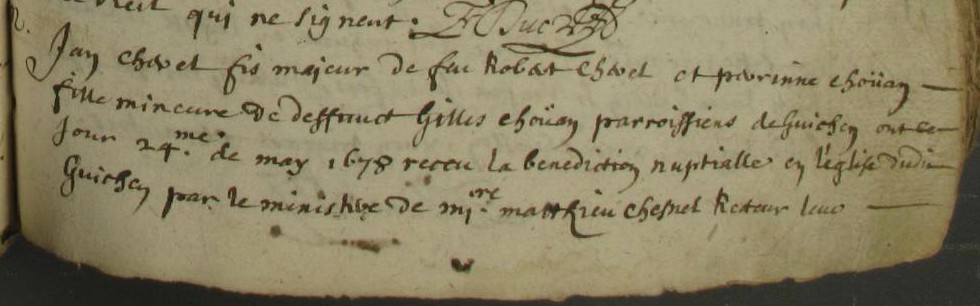 qui ne signent. F Duc
Jan Chevet fis majeur de feu Robert Chevet et perrinne choüan
fille mineure de deffunct Gilles choüan parroissiens de Guichen ont ce
Jour 24.me de may 1678 receu la benediction nuptialle en l'eglise dudit
Guichen par le ministere de mi.re matthieu Chesnel Recteur